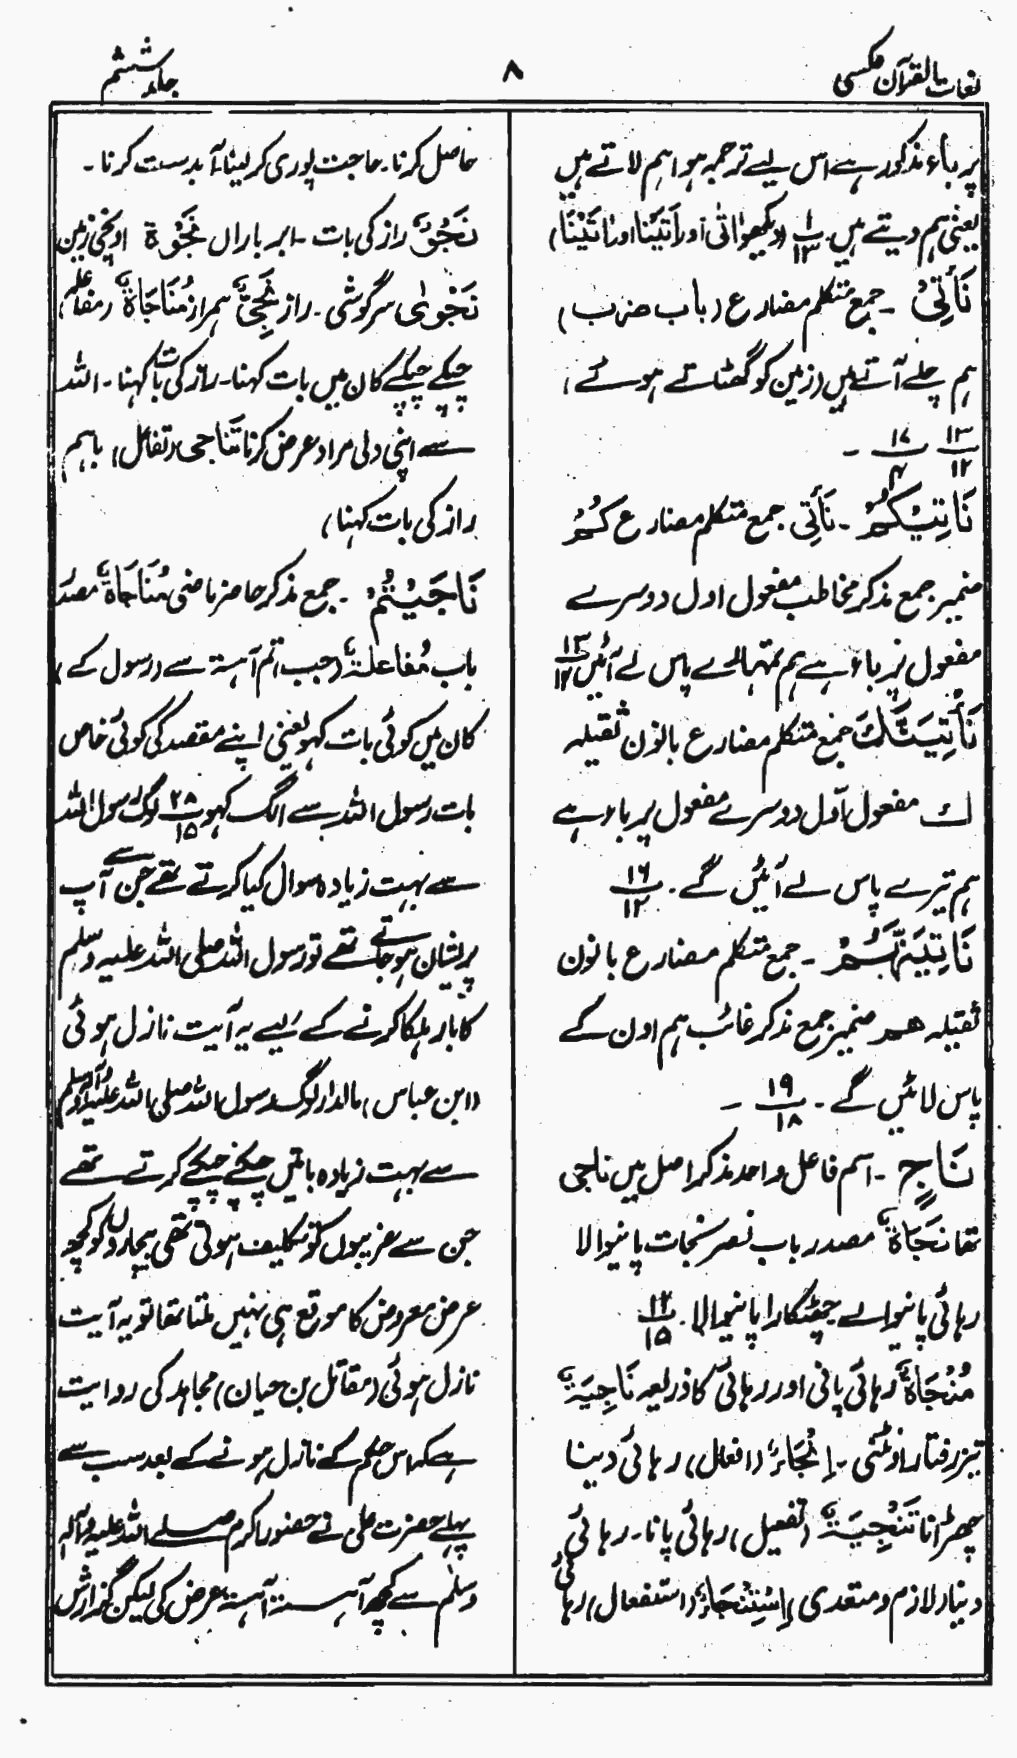 لغات القرآن عکسی
۸
جلد ششم
پر باء مذکور ہے اس لیے ترجمہ ہوا ہم لاتے ہیں
یعنی ہم دیتے ہیں۔ ۱/۱۳ (دیکھو اٰتٰی اور اَتَیْنَا اور اٰتَیْنَا)
نَأْتِیْ ۔ جمع متکلم مضارع (باب ضرب)
ہم چلے آتے ہیں (زمین کو گھٹاتے ہوئے)
۱۳/۱۲ ۱۷/۴ ۔
نَاْتِیْکُمْ ۔ نَأْتِی جمع متکلم مضارع کُمْ
ضمیر جمع مذکر مخاطب مفعول اول دوسرے
مفعول پر باء ہے ہم تمہارے پاس لے آئیں ۱۳/۱۲
نَأْتِیَنَّكَ جمع متکلم مضارع بانون ثقیلہ
ك مفعول اوّل دوسرے مفعول پر باء ہے
ہم تیرے پاس لے آئیں گے۔ ۱۶/۱۲
نَاْتِیَنَّهُمْ ۔ جمع متکلم مضارع بانون
ثقیلہ هم ضمیر جمع مذکر غائب ہم اون کے
پاس لائیں گے ۔ ۱۹/۱۸ ۔
نَاجٍ ۔ اسم فاعل واحد مذکر اصل میں ناجی
تھا نَجَاةٌ مصدر باب نصر نجات پانیوالا
رہائی پانیوالے چھٹکارا پانیوالا۔ ۱۲/۱۵
مُنْجَاةٌ رہائی پانی اور رہائی کا ذریعہ نَاجِیَةٌ
تیز رفتار اونٹنی ۔ اِنْجَاءٌ (افعال) رہائی دینا
چھڑانا تَنْجِیَةٌ (تفعیل) رہائی پانا۔ رہائی
دینا (لازم و متعدی) اِسْتِنْجَاءٌ (استفعال) رہائی
حاصل کرنا۔ حاجت پوری کر لینا۔ آبدست کرنا ۔
نَجْوٌ راز کی بات ۔ ابر باراں نَجْوَة اونچی زمین
نَجْوٰی سرگوشی ۔ راز نَجِیٌّ ہمراز مُنَاجَاةٌ (مفاعلہ)
چپکے چپکے کان میں بات کہنا۔ راز کی بات کہنا۔ اللہ
سے اپنی دلی مراد عرض کرنا تَنَاجی (تفاعل) باہم
راز کی بات کہنا)
نَاجَیْتُمْ ۔ جمع مذکر حاضر ماضی مُنَاجَاةٌ مصدر
باب مُفاعلةٌ (جب تم آہستہ سے (رسول کے)
کان میں کوئی بات کہو یعنی اپنے مقصد کی کوئی خاص
بات رسول اللہ سے الگ کہو ۲۸/۱۵ لوگ رسول اللہ
سے بہت زیادہ سوال کیا کرتے تھے جن سے آپ
پریشان ہو جاتے تھے تو رسول اللہ صلی اللہ علیہ وسلم
کا بار ہلکا کرنے کے لیے یہ آیت نازل ہوئی
(ابن عباس) مالدار لوگ رسول اللہ صلی اللہ علیہ وآلہ وسلم
سے بہت زیادہ باتیں چپکے چپکے کرتے تھے
جن سے غریبوں کو تکلیف ہوتی تھی بیچاروں کو کچھ
عرض معروض کا موقع ہی نہیں ملتا تھا تو یہ آیت
نازل ہوئی (مقاتل بن حیان) مجاہد کی روایت
ہے کہ اس حکم کے نازل ہونے کے بعد سب سے
پہلے حضرت علی نے حضور اکرم صلے اللہ علیہ وآلہ
وسلم سے کچھ آہستہ آہستہ عرض کی لیکن گذارش